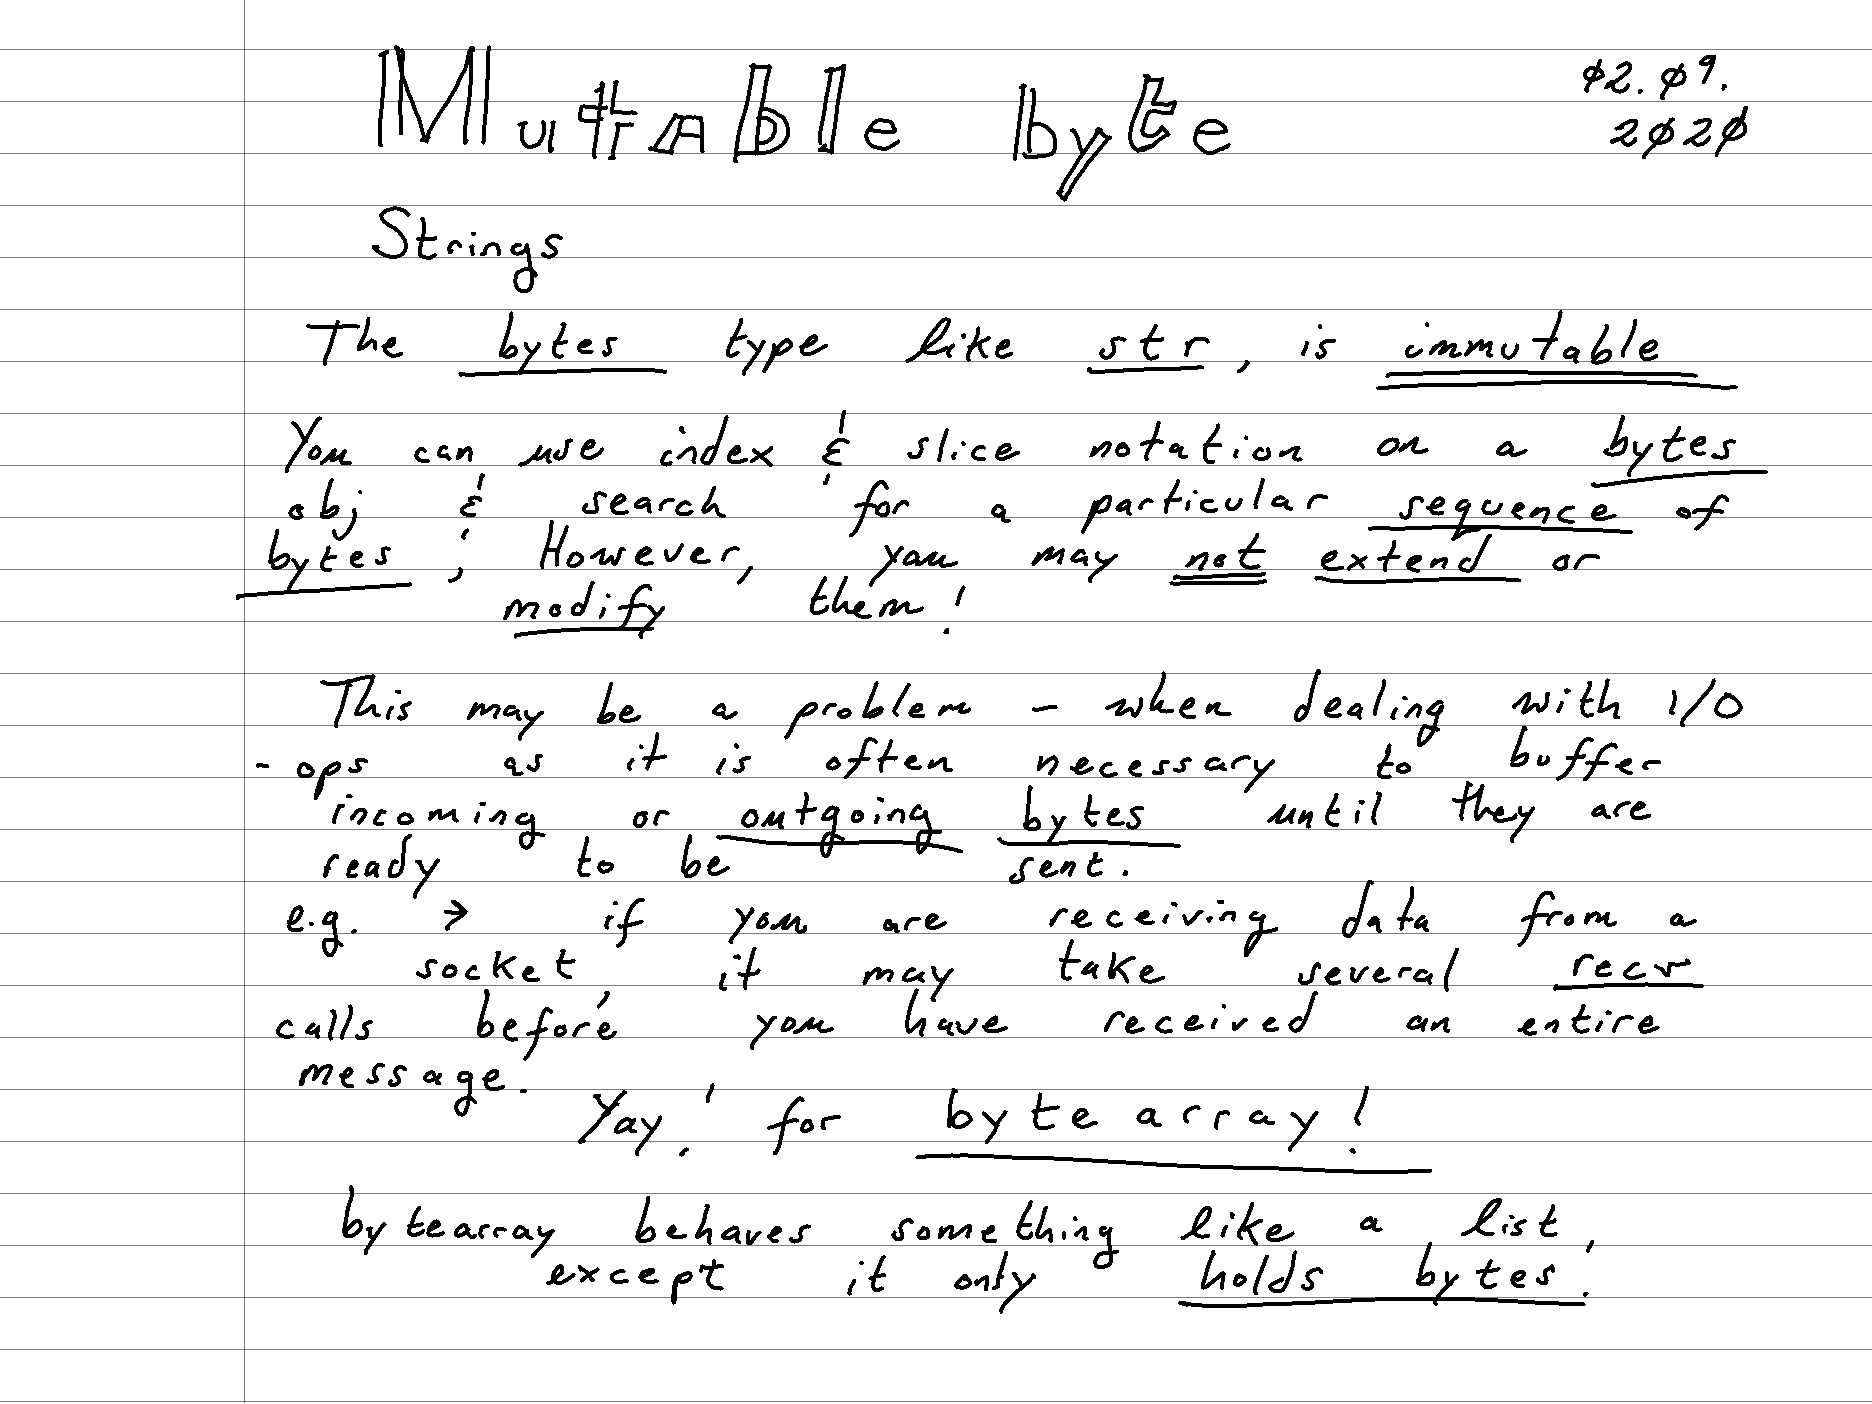 Mutable byte
02.09.
2020
Strings
The bytes type like str, is immutable
You can use index & slice notation on a bytes
obj & search for a particular sequence of
bytes; However, you may not extend or
modify them!
This may be a problem - when dealing with I/O
- ops as it is often necessary to buffer
incoming or outgoing bytes until they are
ready to be sent.
e.g. → if you are receiving data from a
socket, it may take several recv
calls before you have received an entire
message.
Yay! for bytearray!
bytearray behaves something like a list,
except it only holds bytes!